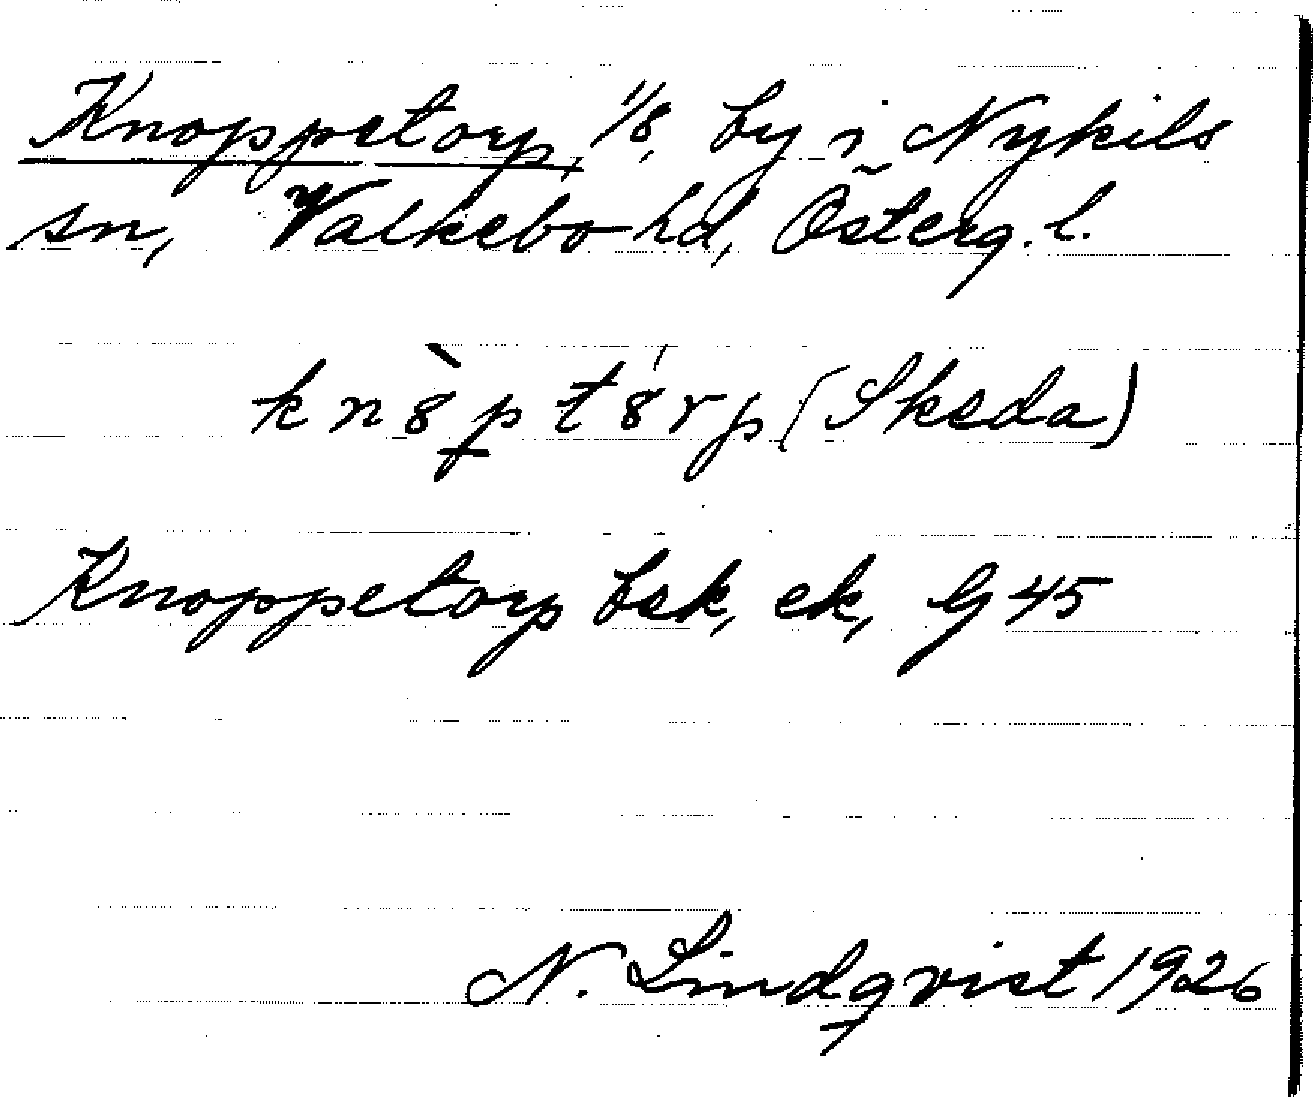 Knoppetorp, 1/8, by i Nykils
sn, Valkebo hd, Österg. l.
kn8̀pt8́rp (Skeda)
Knoppetorp bsk, ek, G 45
N. Lindqvist 1926